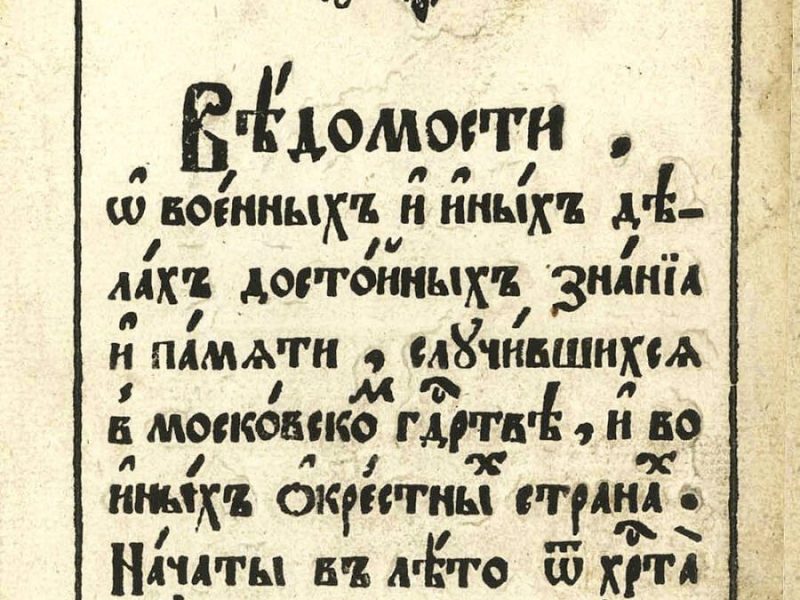 Вѣ́домости .
ѡ҆ вое́нныхъ и҆ и҆ны́хъ дѣ́-
ла́хъ досто́йныхъ зна́нїѧ
и҆ па́мѧти , слꙋчи́вшихсѧ
в̾ моско́вскоⷨ гдⷭ҇рьтвѣ , и҆ во
и҆ны́хъ ѻ҆кре́стныⷯ странаⷯ .
На́чаты въ лѣ́то ѿ хрⷭ҇та̀